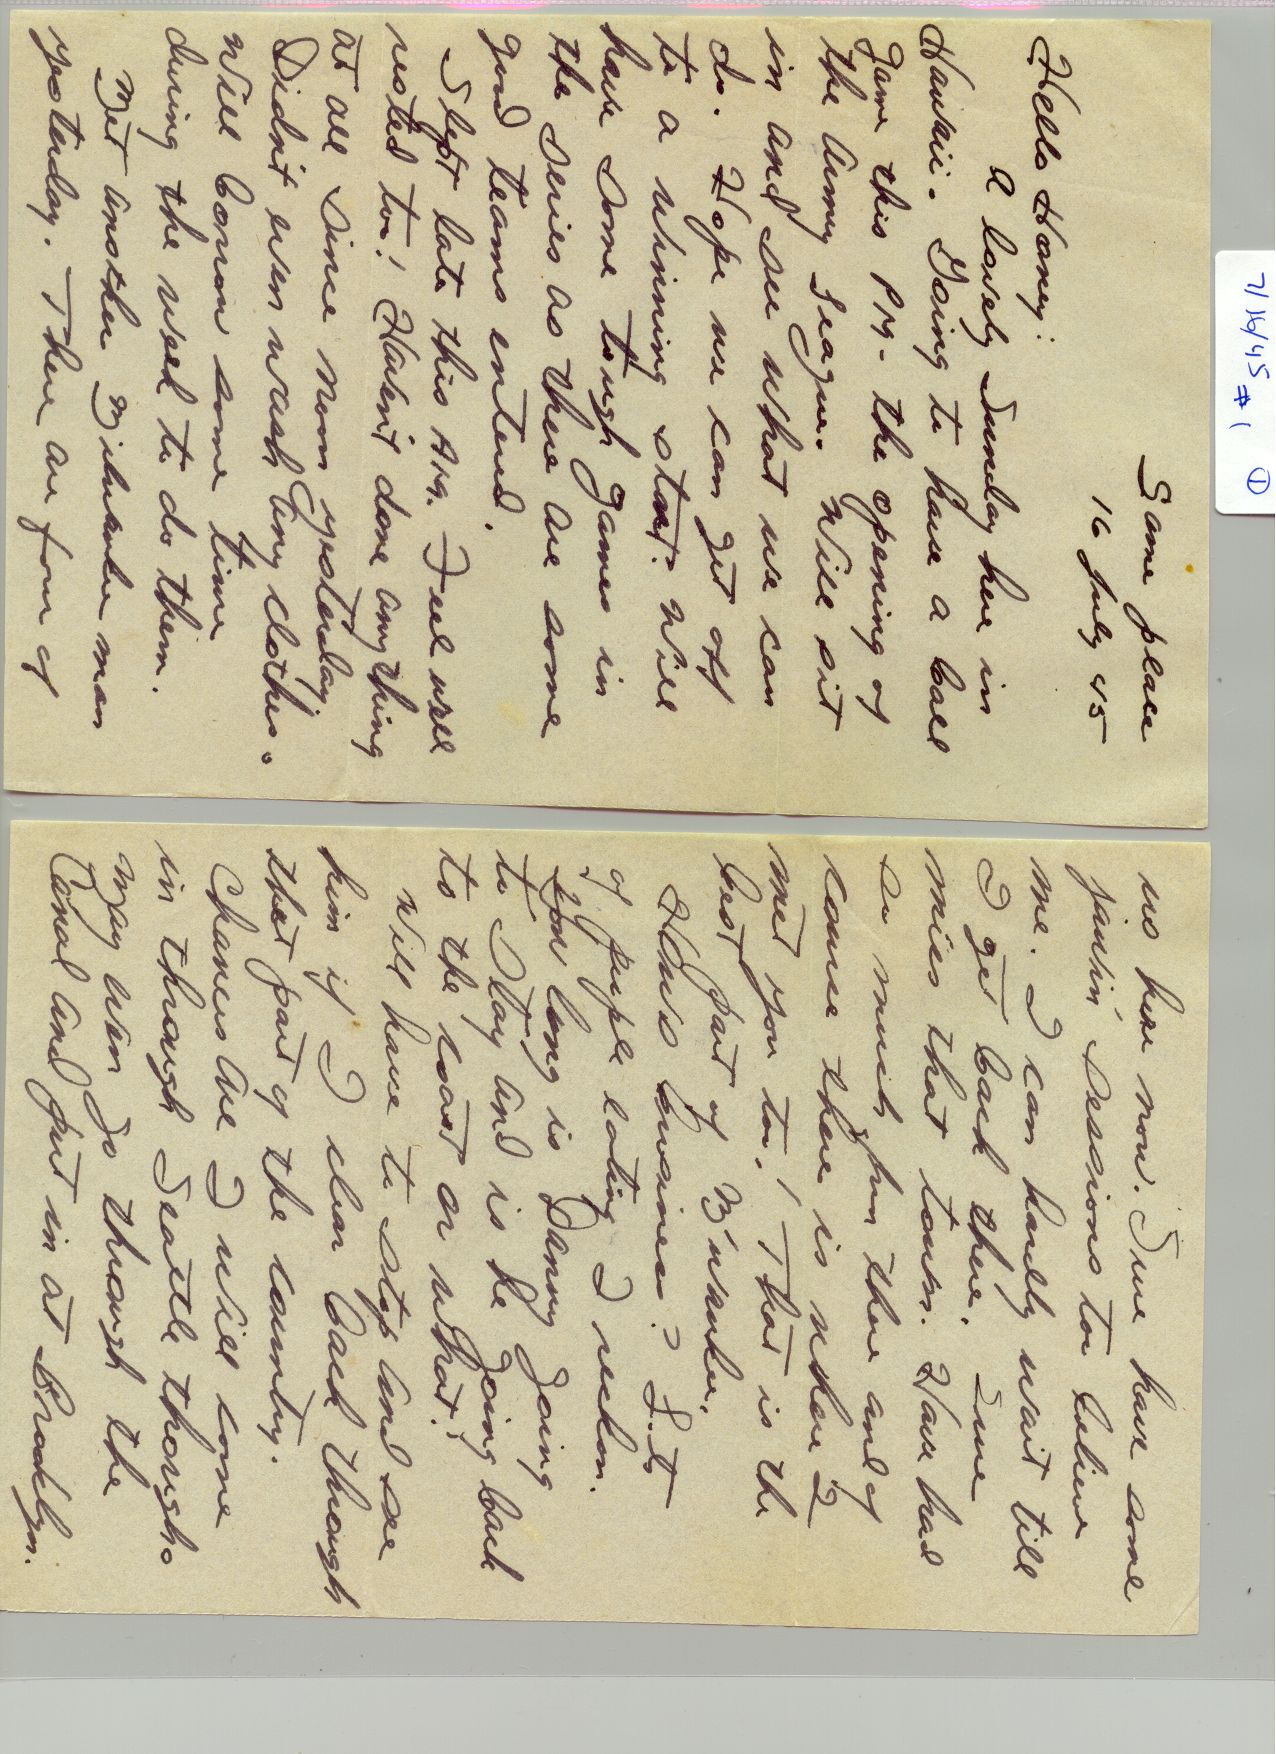 7/16/45 #1 ①
Same place
16 July 45
Hello Honey:
A lovely Sunday here in
Hawaii. Going to have a ball
game this PM - the opening of
the Army League. Will sit
in and see what we can
do. Hope we can get off
to a winning start. Will
have some tough games in
the series as there are some
good teams entered.
Slept late this AM. Feel well
rested too! Haven't done anything
at all since noon yesterday
Didn't even wash any clothes.
Will borrow some time
during the week to do them.
Met another Milwaukee man
yesterday. There are four of
us here now. Sure have some
jawin' sessions too believe
me. I can hardly wait till
I get back there. Sure
miss that town. Have had
so much fun there and of
course there is where I
met you too! That is the
best part of M'waukee.
How's business? Lots
of people eating I reckon.
How long is Danny going
to stay and is he going back
to the coast or what?
Will have to stop and see
him if I clear back through
that part of the country.
Chances are I will come
in through Seattle though.
May even go through the
Canal and put in at Brooklyn.